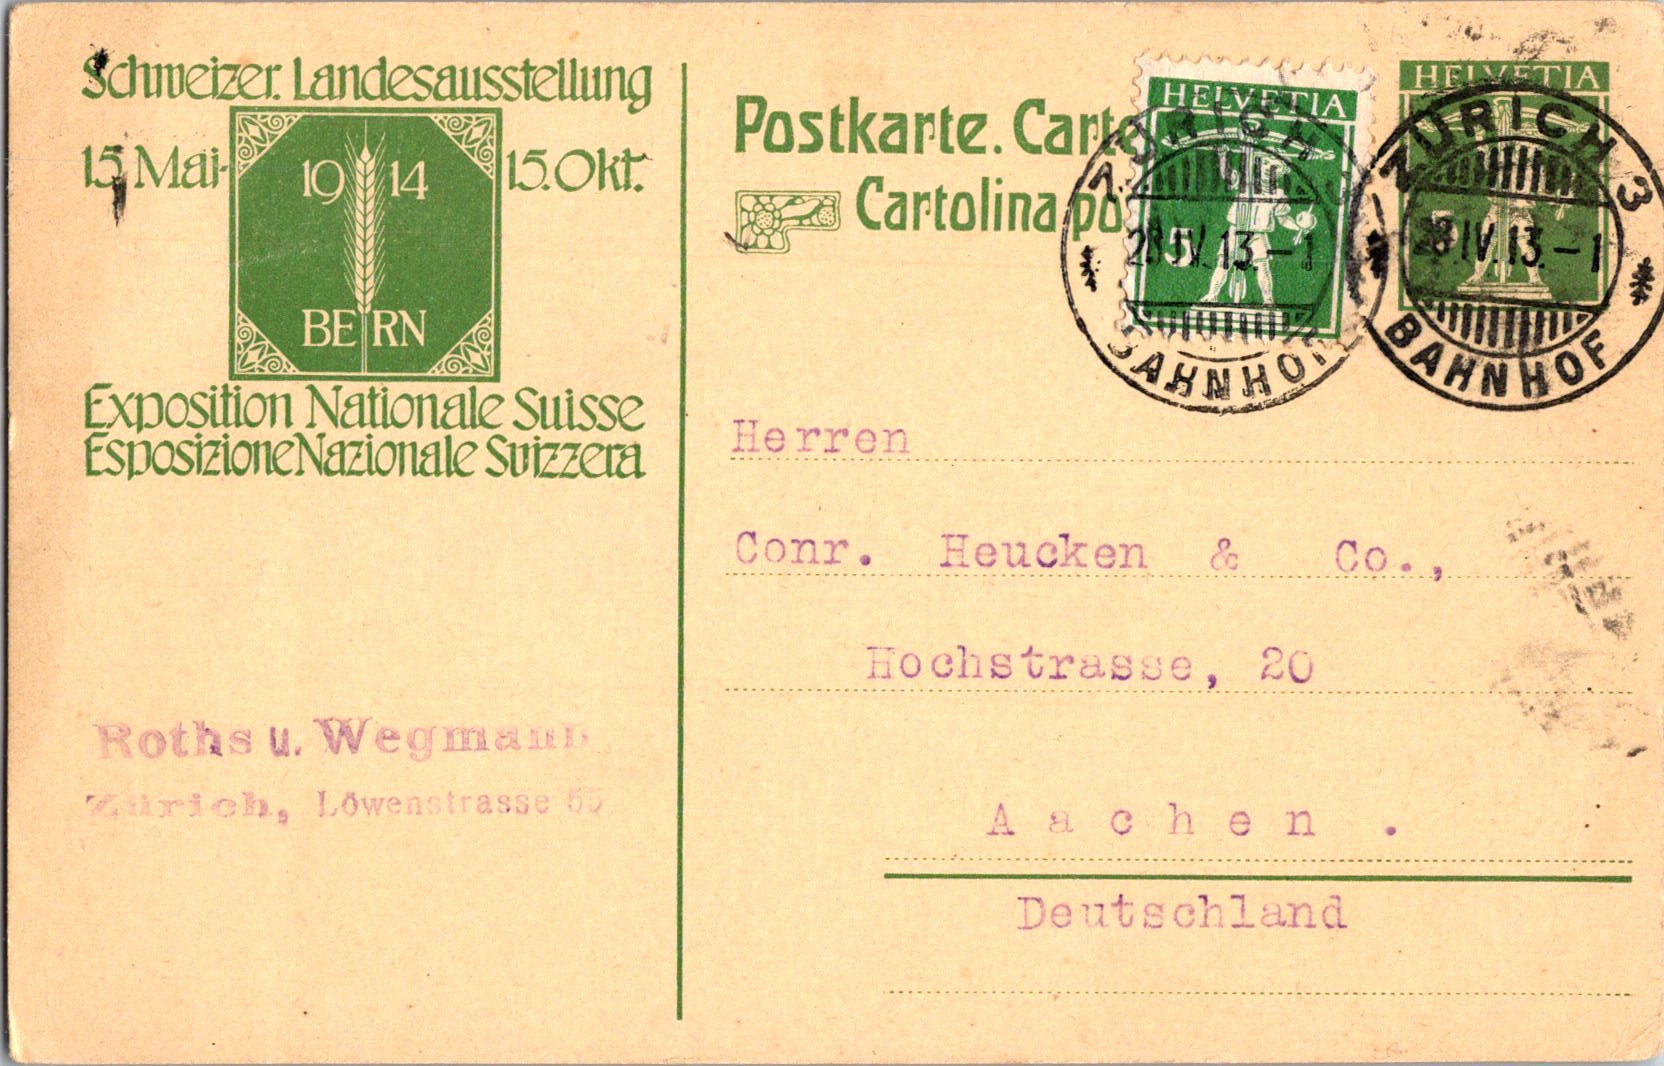 Schweizer. Landesausstellung
15. Mai - 15. Okt.
19 14
BERN
Exposition Nationale Suisse
Esposizione Nazionale Svizzera
Postkarte. Carte
Cartolina po
HELVETIA
5
HELVETIA
5
ZÜRICH
28.IV.13.-1
BAHNHOF
ZÜRICH 3
28.IV.13.-1
BAHNHOF
Herren
Conr. Heucken & Co.,
Hochstrasse, 20
Aachen.
Deutschland
Roths u. Wegmann
Zürich, Löwenstrasse 55